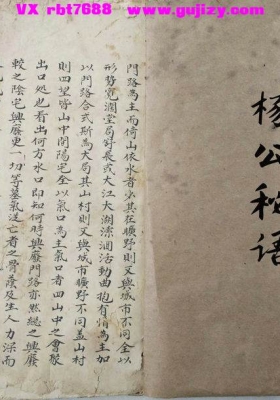 VX rbt7688 www.gujizy.com
楊公秘語
門路為主而倚山依水者必其在曠野則又與城市不同全以
形勢寬濶堂局舒展或大江大湖濚洄活動曲抱有情為主加
以門路合式斯為大局其山村則又與城市曠野不同盖山村
則四望皆山中開陽宅全以氣口為主氣口者四山中之會聚
出口処也看出何方水口即知何時興廢門路亦然總之興廢
較之陰宅興廢更一切等墓氣従亡者之骨蔭及生人力深而